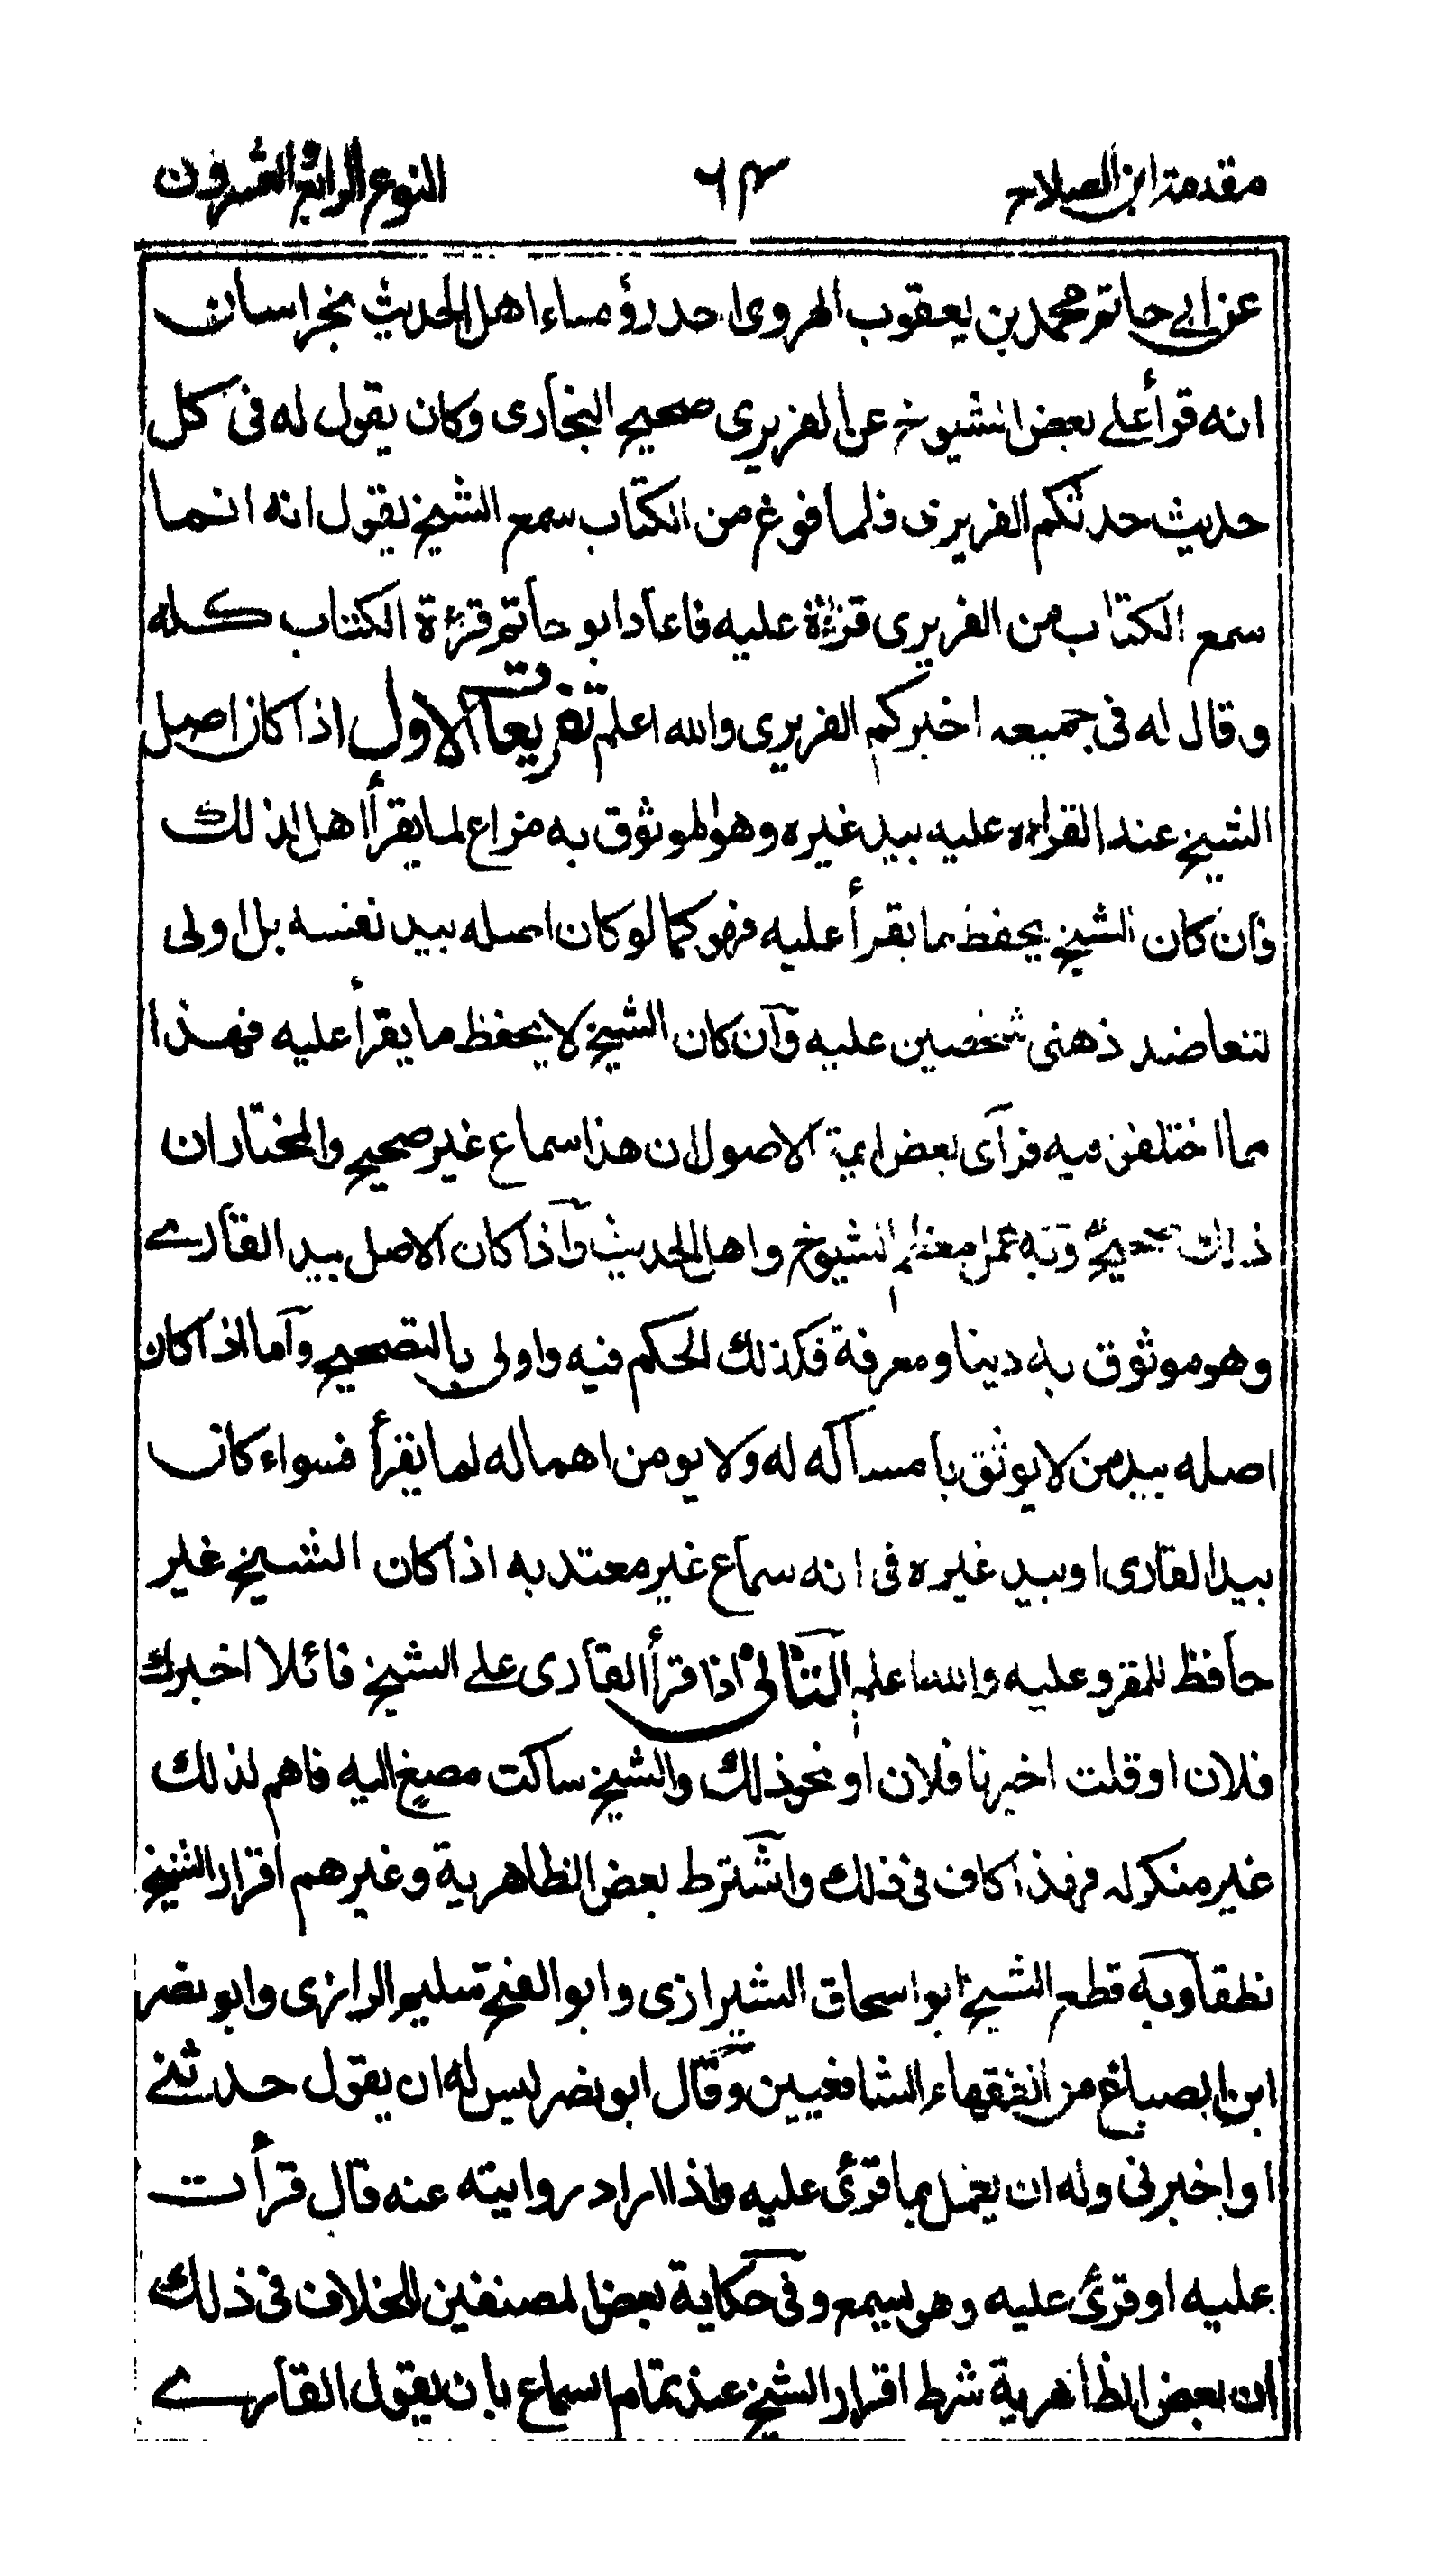 مقدمة ابن الصلاح ٦٤ النوع الرابع والعشرون
عن ابي حاتم محمد بن يعقوب الهروى احد رؤساء اهل الحديث بخراسان
انه قرأ على بعض الشيوخ عن الفربرى صحيح البخارى وكان يقول له فى كل
حديث حدثكم الفربرى فلما فرغ من الكتاب سمع الشيخ يقول انه انما
سمع الكتاب من الفربرى قرءة عليه فاعاد ابو حاتم قرءة الكتاب كله
وقال له فى جميعه اخبركم الفربرى والله اعلم تفريعات الاول اذا كان اصل
الشيخ عند القراءة عليه بيد غيره وهو الموثوق به مراع لما يقرأ اهل لذلك
فان كان الشيخ يحفظ ما يقرأ عليه فهو كما لو كان اصله بيد نفسه بل اولى
لتعاضد ذهنى شخصين عليه وان كان الشيخ لا يحفظ ما يقرأ عليه فهذا
مما اختلفن فيه فرآى بعض ايمة الاصول ان هذا سماع غير صحيح والمختار ان
ذلك صحيح وبه عمل معظم الشيوخ واهل الحديث واذا كان الاصل بيد القارے
وهو موثوق به دينا ومعرفة فكذلك الحكم فيه واولى بالتصحيح واما اذا كان
اصله بيد من لا يوثق بامساكه له ولا يومن اهماله لما يقرأ فسواء كان
بيد القارى او بيد غيره فى انه سماع غير معتد به اذا كان الشيخ غير
حافظ للمقرو عليه والله اعلم الثانى اذا قرأ القارى على الشيخ قائلا اخبرك
فلان او قلت اخبرنا فلان او نحو ذلك والشيخ ساكت مصغ اليه فاهم لذلك
غير منكر له فهذا كاف فى ذلك واشترط بعض الظاهرية وغيرهم اقرار الشيخ
نطقا وبه قطع الشيخ ابو اسحاق الشيرازى وابو الفتح سليم الرازى وابو نصر
ابن الصباغ من الفقهاء الشافعيين وقال ابو نصر ليس له ان يقول حدثنے
او اخبرنى وله ان يعمل بما قرئ عليه واذا اراد روايته عنه قال قرأت
عليه او قرئ عليه وهو يسمع وفى حكاية بعض المصنفين للخلاف فى ذلك
ان بعض الظاهرية شرط اقرار الشيخ عند تمام السماع بان يقول القارے